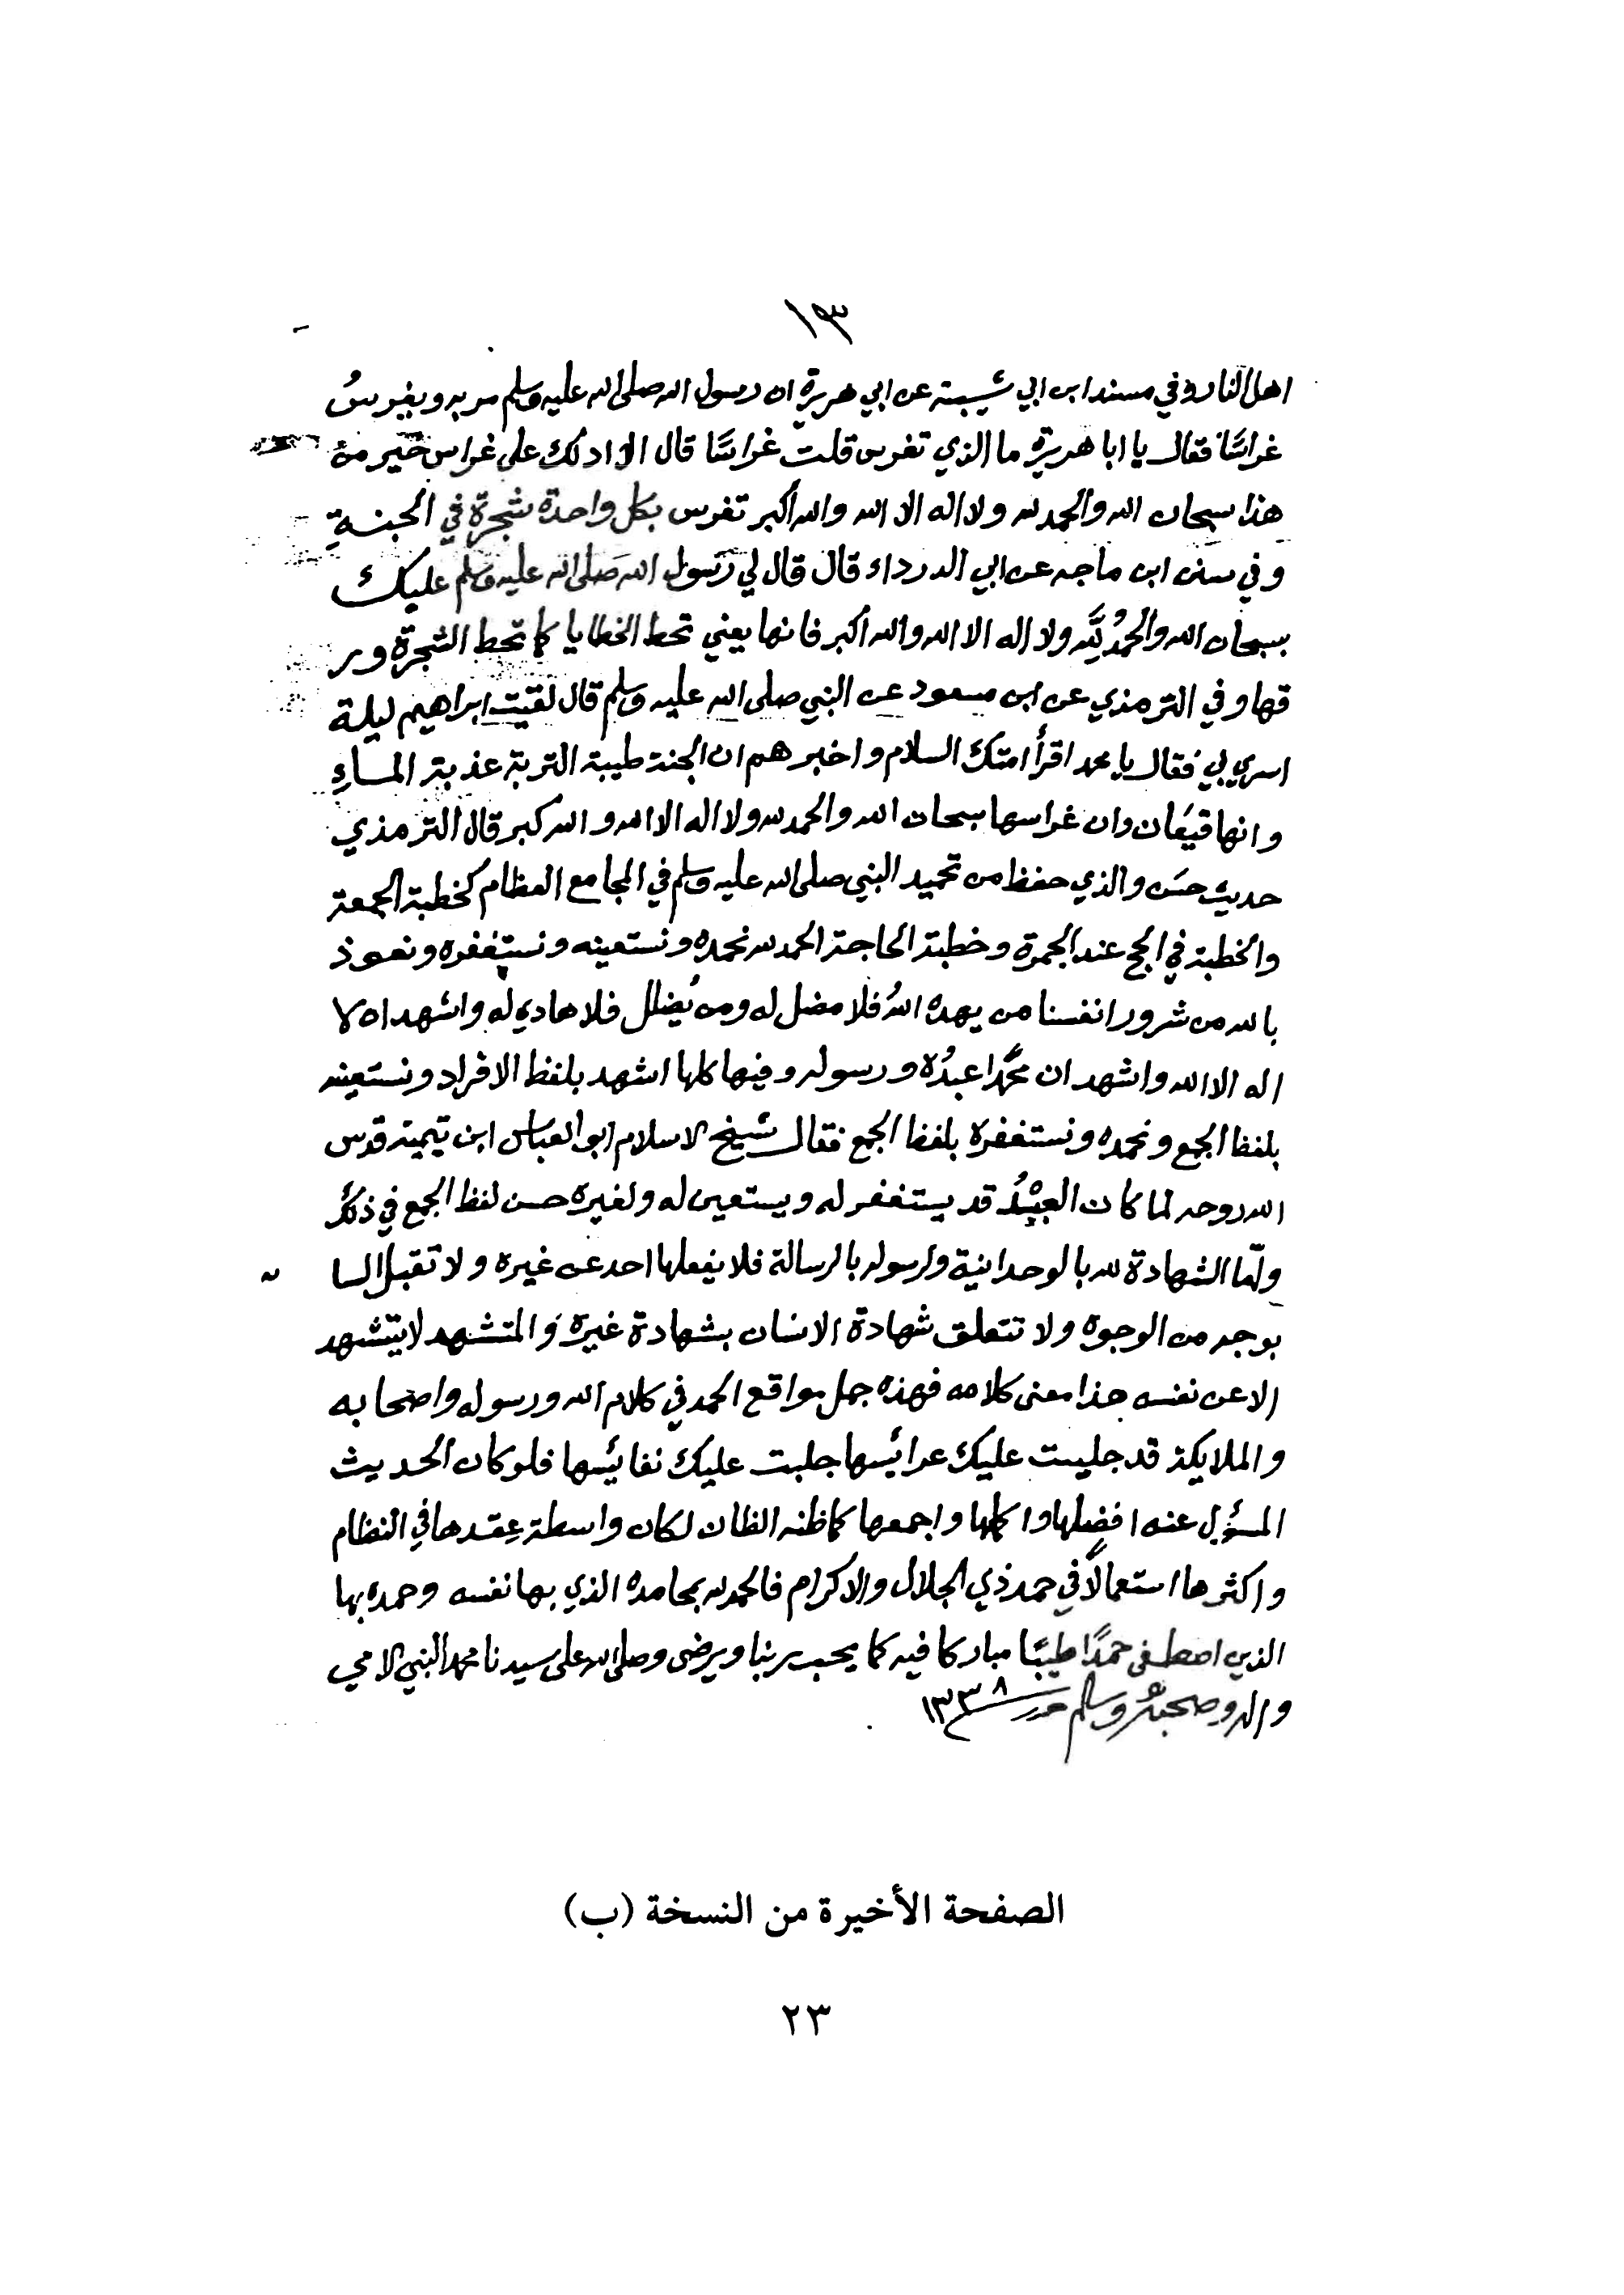 ١٣
اهل النار وفي مسند ابن ابي شيبة عن ابي هريرة ان رسول الله صلى الله عليه وسلم مر به ويغرسُ
غراسًا فقال يا ابا هريرة ما الذي تغرس قلت غراسًا قال الا ادلك على غراس خير من
هذا سبحان الله والحمد لله ولا اله الا الله والله أكبر تغرس بكل واحدة شجرة في الجنةِ
وفي سنن ابن ماجه عن ابي الدرداء قال قال لي رسول الله صلى الله عليه وسلم عليك
بسبحان الله والحمدُ للَّه ولا اله الا الله والله أكبر فانها يعني تحط الخطايا كما تحط الشجرة ور
قها وفي الترمذي عن ابن مسعود عن النبي صلى الله عليه وسلم قال لقيت ابراهيم ليلة
اسري بي فقال يا محمد اقرأ امتك السلام واخبرهم ان الجنة طيبة التربة عذبة الماءِ
وانها قيعَان وان غراسها سبحان الله والحمد لله ولا اله الا الله والله كبر قال الترمذي
حديث حسَن والذي حفظ من تحميد النبي صلى الله عليه وسلم في المجامع العظام كخطبة الجمعة
والخطبة في الحج عند الجمرة وخطبة الحاجة الحمد لله نحمده ونستعينه ونستغفره ونعوذ
بالله من شرور انفسنا من يهده اللهُ فلا مضل له ومن يُضلل فلا هادي له واشهد ان لا
اله الا الله واشهد ان محمدًا عبدُه ورسوله وفيها كلها اشهد بلفظ الافراد ونستعينه
بلفظ الجمع ونحمده ونستغفره بلفظ الجمع فقال شيخ الاسلام ابو العباس ابن تيمية قدس
الله روحه لما كان العبْدُ قد يستغفر له ويستعين له ولغيره حسن لفظ الجمع في ذلك
ولمّا الشهادة لله بالوحدانية ولرسوله بالرسالة فلا يفعلها احد عن غيره ولا تقبل السا
بوجه من الوجوه ولا تتعلق شهادة الانسان بشهادة غيره وَالمتشهد لا يتشهد
الا عن نفسه هذا معنى كلامه فهذه جمل مواقع الحمد في كلام الله ورسوله واصحابه
والملايكة قد جليت عليك عرائسها جلبت عليك نفائسها فلو كان الحديث
المسؤل عنه افضلها واكملها واجمعها كما ظنه الظان لكان واسطة عِقدها في النظام
واكثرها استعمالًا في حمد ذي الجلال والاكرام فالحمد لله بمحامده الذي بها نفسه وحمده بها
الذين اصطفى حمدًا طيبًا مباركا فيه كما يحب ربنا ويرضى وصلى الله على سيدنا محمد النبي الامي
واله وصحبه وسلم ١٣٣٨
الصفحة الأخيرة من النسخة (ب)
٢٣